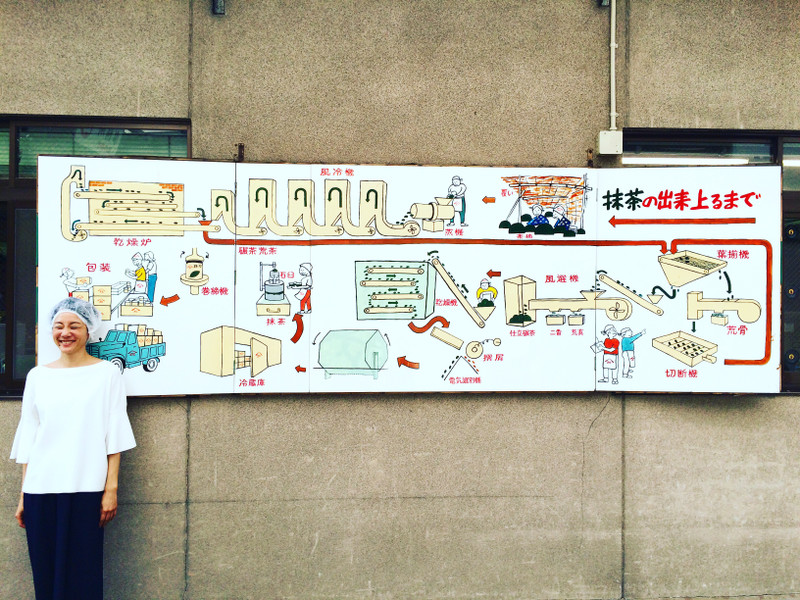 抹茶の出来上るまで
覆い
蒸機
風冷機
乾燥炉
碾茶荒茶
葉揃機
荒骨
切断機
風選機
仕立碾茶
二骨
乾燥機
撰房
電気選別機
冷蔵庫
石臼
抹茶
包装